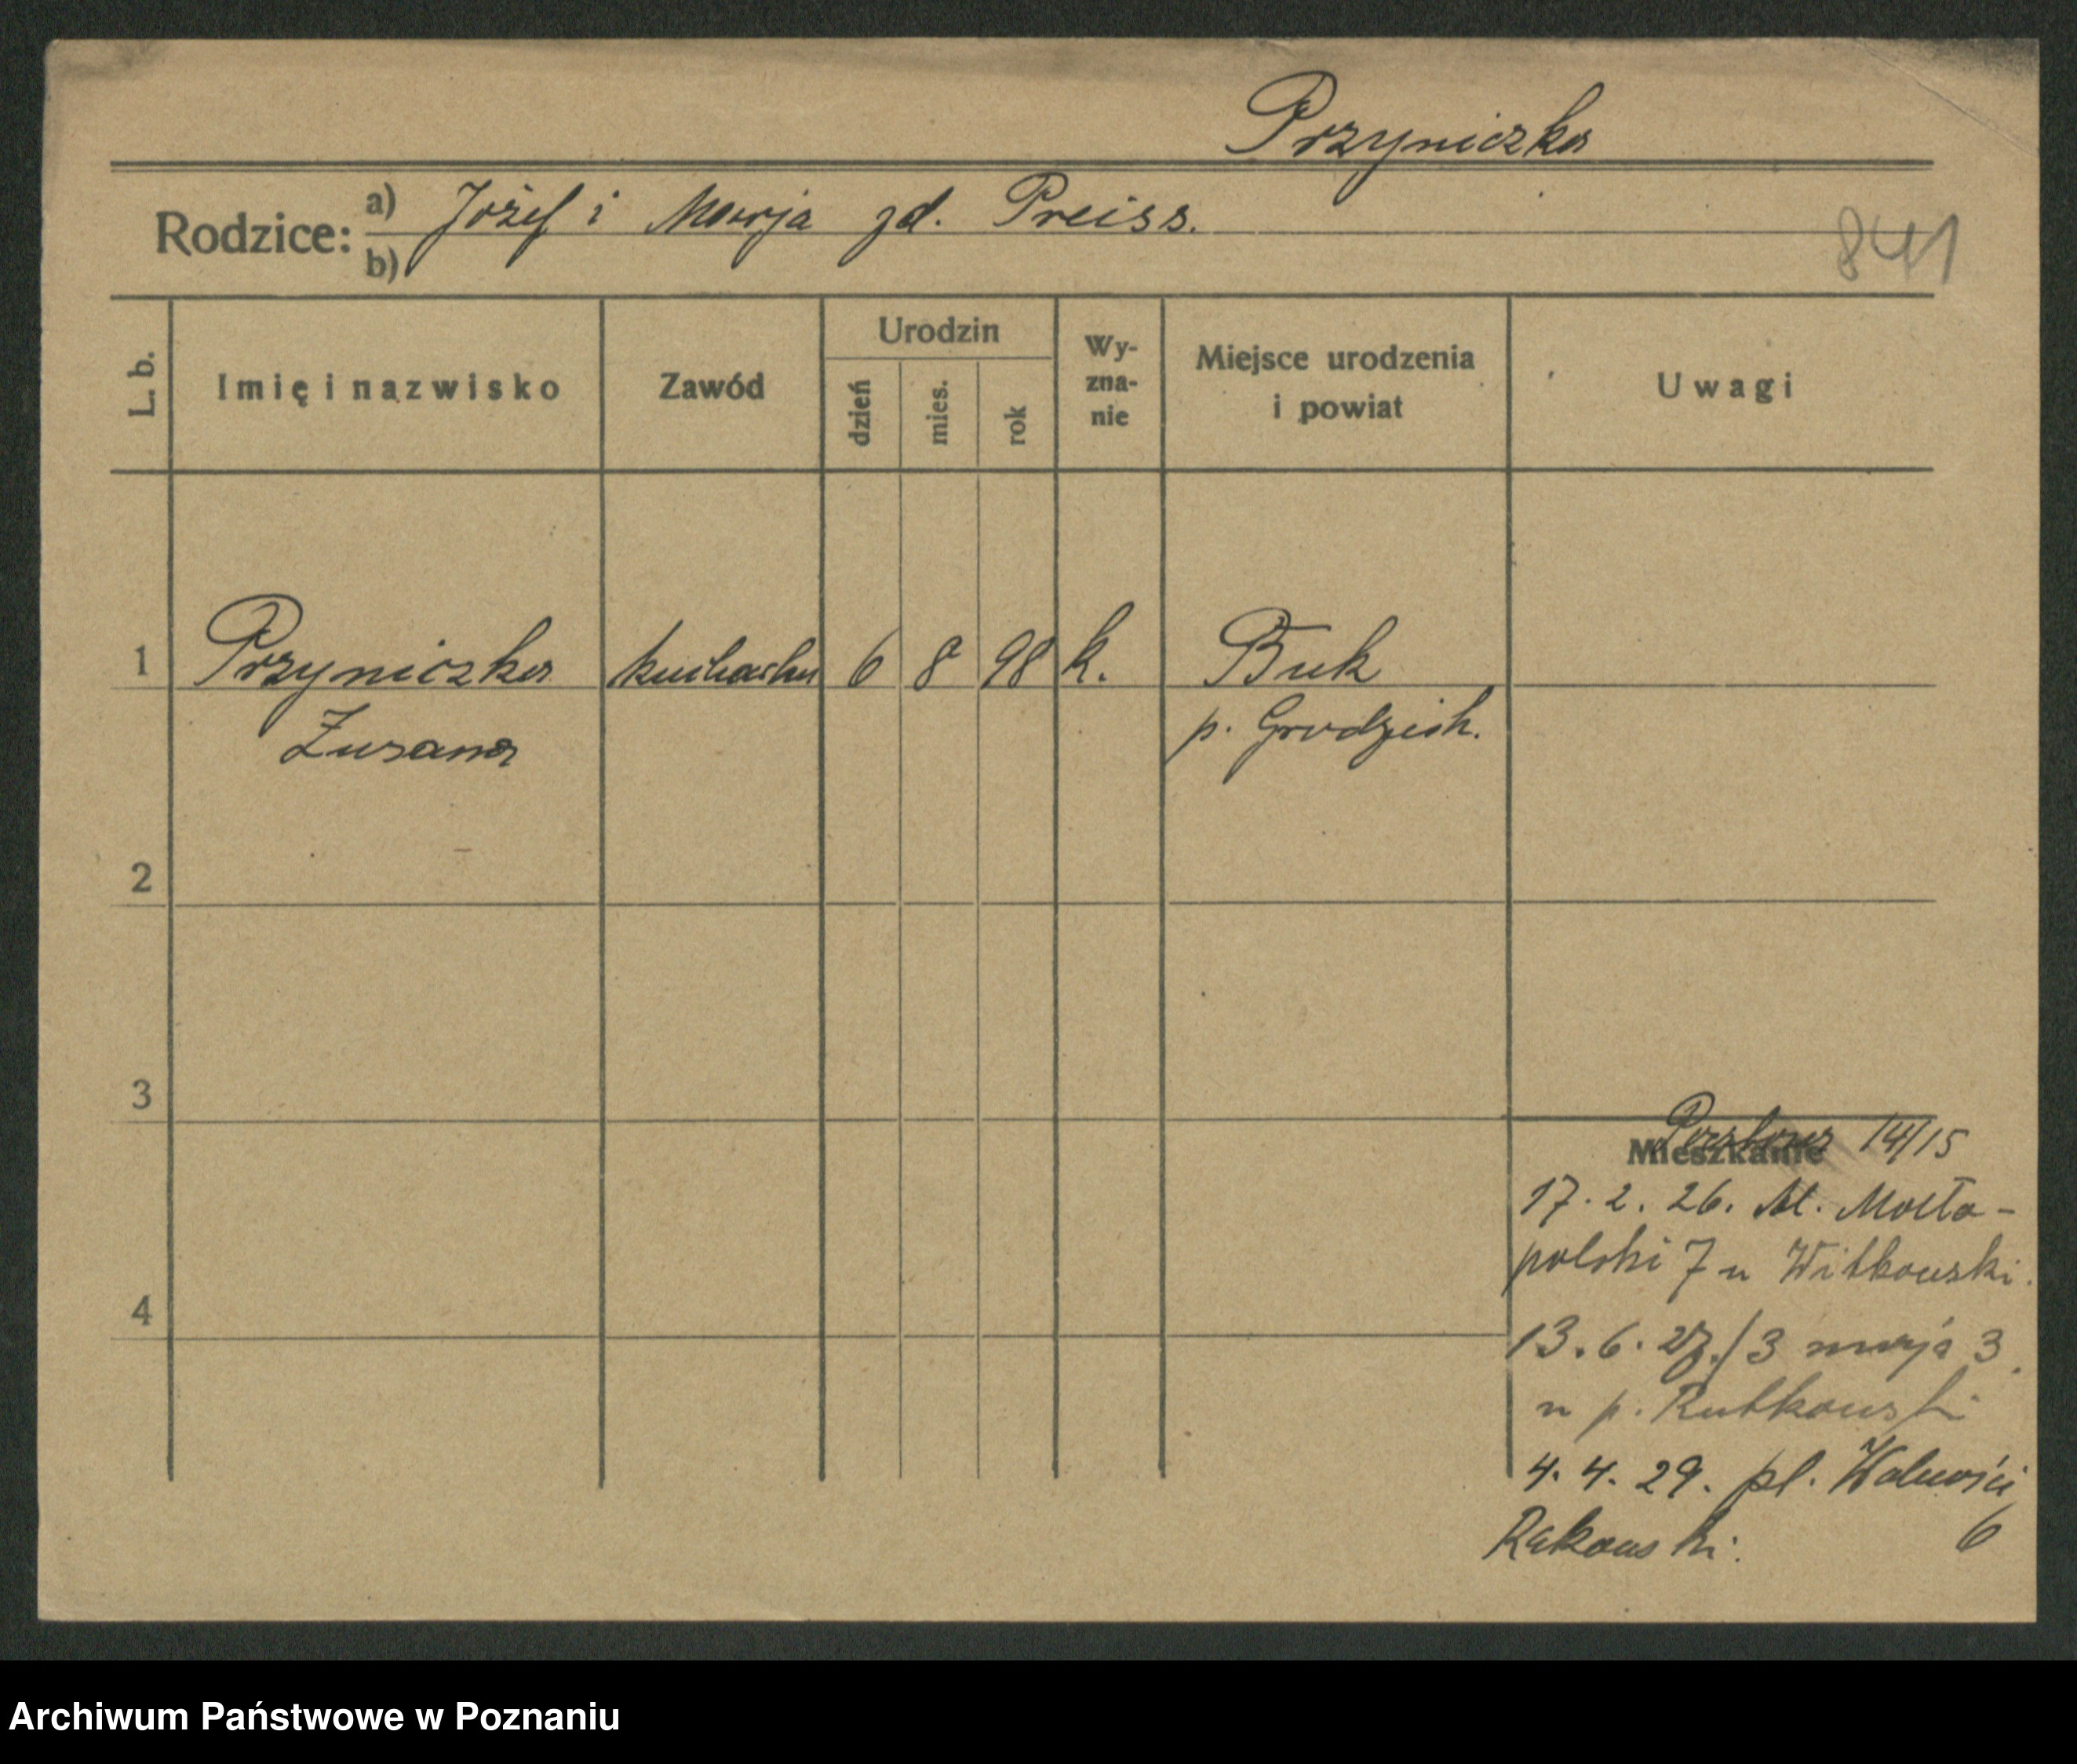 Przyniczka
Rodzice: a) Józef i Marja zd. Preiss.
b)
841
L. b. Imię i nazwisko Zawód Urodzin dzień mies. rok Wy-zna-nie Miejsce urodzenia i powiat Uwagi
1 Przyniczka kucharka 6 8 98 k. Buk
Zuzanna p. Grodzisk.
2
3
Mieszkanie 14/15
17. 2. 26. Pl. Mało-
polski 7 u Witkowski.
4
13. 6. 27. / 3 maja 3
u p. Rutkowski
4. 4. 29. pl. Wolności
Rakowski. 6
Archiwum Państwowe w Poznaniu